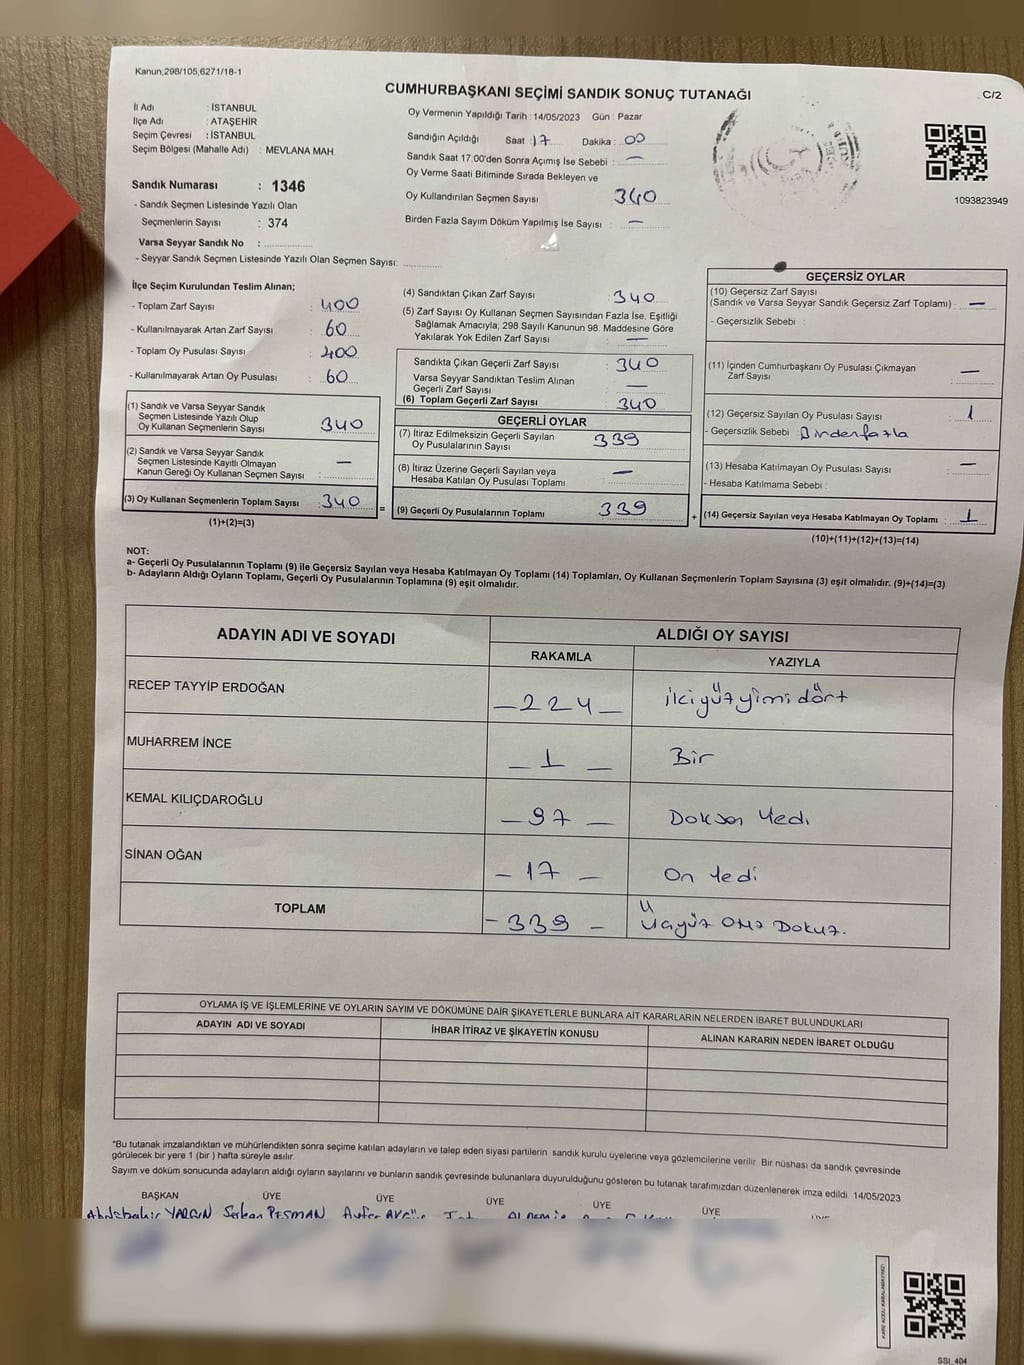 Kanun;298/105,6271/18-1
CUMHURBAŞKANI SEÇİMİ SANDIK SONUÇ TUTANAĞI
C/2
İl Adı : İSTANBUL
İlçe Adı : ATAŞEHİR
Seçim Çevresi : İSTANBUL
Seçim Bölgesi (Mahalle Adı) : MEVLANA MAH.
Sandık Numarası : 1346
- Sandık Seçmen Listesinde Yazılı Olan
Seçmenlerin Sayısı : 374
Varsa Seyyar Sandık No :
- Seyyar Sandık Seçmen Listesinde Yazılı Olan Seçmen Sayısı:
Oy Vermenin Yapıldığı Tarih : 14/05/2023 Gün : Pazar
Sandığın Açıldığı Saat : 17 Dakika : 00
Sandık Saat 17:00'den Sonra Açımış İse Sebebi : —
Oy Verme Saati Bitiminde Sırada Bekleyen ve
Oy Kullandırılan Seçmen Sayısı 340
Birden Fazla Sayım Döküm Yapılmış İse Sayısı : —
1093823949
İlçe Seçim Kurulundan Teslim Alınan;
- Toplam Zarf Sayısı : 400
- Kullanılmayarak Artan Zarf Sayısı : 60
- Toplam Oy Pusulası Sayısı : 400
- Kullanılmayarak Artan Oy Pusulası : 60
(1) Sandık ve Varsa Seyyar Sandık
Seçmen Listesinde Yazılı Olup
Oy Kullanan Seçmenlerin Sayısı 340
(2) Sandık ve Varsa Seyyar Sandık
Seçmen Listesinde Kayıtlı Olmayan
Kanun Gereği Oy Kullanan Seçmen Sayısı : —
(3) Oy Kullanan Seçmenlerin Toplam Sayısı : 340
(1)+(2)=(3)
=
(4) Sandıktan Çıkan Zarf Sayısı : 340
(5) Zarf Sayısı Oy Kullanan Seçmen Sayısından Fazla İse, Eşitliği
Sağlamak Amacıyla; 298 Sayılı Kanunun 98. Maddesine Göre
Yakılarak Yok Edilen Zarf Sayısı : —
Sandıkta Çıkan Geçerli Zarf Sayısı : 340
Varsa Seyyar Sandıktan Teslim Alınan
Geçerli Zarf Sayısı : —
(6) Toplam Geçerli Zarf Sayısı : 340
GEÇERLİ OYLAR
(7) İtiraz Edilmeksizin Geçerli Sayılan
Oy Pusulalarının Sayısı : 339
(8) İtiraz Üzerine Geçerli Sayılan veya
Hesaba Katılan Oy Pusulası Toplamı : —
(9) Geçerli Oy Pusulalarının Toplamı : 339
+
GEÇERSİZ OYLAR
(10) Geçersiz Zarf Sayısı
(Sandık ve Varsa Seyyar Sandık Geçersiz Zarf Toplamı) : —
- Geçersizlik Sebebi :
(11) İçinden Cumhurbaşkanı Oy Pusulası Çıkmayan
Zarf Sayısı : —
(12) Geçersiz Sayılan Oy Pusulası Sayısı : 1
- Geçersizlik Sebebi : Birden fazla
(13) Hesaba Katılmayan Oy Pusulası Sayısı : —
- Hesaba Katılmama Sebebi :
(14) Geçersiz Sayılan veya Hesaba Katılmayan Oy Toplamı : 1
(10)+(11)+(12)+(13)=(14)
NOT:
a- Geçerli Oy Pusulalarının Toplamı (9) ile Geçersiz Sayılan veya Hesaba Katılmayan Oy Toplamı (14) Toplamları, Oy Kullanan Seçmenlerin Toplam Sayısına (3) eşit olmalıdır. (9)+(14)=(3)
b- Adayların Aldığı Oyların Toplamı, Geçerli Oy Pusulalarının Toplamına (9) eşit olmalıdır.
ADAYIN ADI VE SOYADI
ALDIĞI OY SAYISI
RAKAMLA YAZIYLA
RECEP TAYYİP ERDOĞAN — 224 — ikiyüzyimidört
MUHARREM İNCE — 1 — Bir
KEMAL KILIÇDAROĞLU — 97 — Doksan Yedi
SİNAN OĞAN — 17 — On Yedi
TOPLAM — 339 — Üçyüz Otuz Dokuz.
OYLAMA İŞ VE İŞLEMLERİNE VE OYLARIN SAYIM VE DÖKÜMÜNE DAİR ŞİKAYETLERLE BUNLARA AİT KARARLARIN NELERDEN İBARET BULUNDUKLARI
ADAYIN ADI VE SOYADI İHBAR İTİRAZ VE ŞİKAYETİN KONUSU ALINAN KARARIN NEDEN İBARET OLDUĞU
*Bu tutanak imzalandıktan ve mühürlendikten sonra seçime katılan adayların ve talep eden siyasi partilerin sandık kurulu üyelerine veya gözlemcilerine verilir. Bir nüshası da sandık çevresinde
görülecek bir yere 1 (bir ) hafta süreyle asılır.
Sayım ve döküm sonucunda adayların aldığı oyların sayılarını ve bunların sandık çevresinde bulunanlara duyurulduğunu gösteren bu tutanak tarafımızdan düzenlenerek imza edildi. 14/05/2023
BAŞKAN ÜYE ÜYE ÜYE ÜYE ÜYE
YARGIN Serkan PESMAN
SSI_404